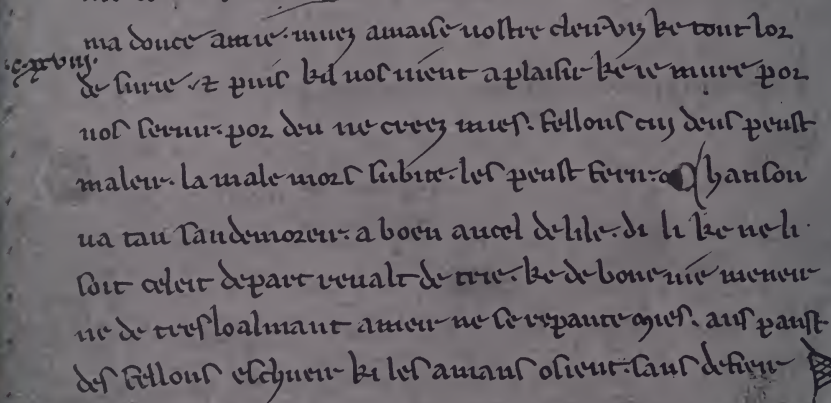 ma douce amie. muez amaise uostre cleir vis ke tout lor
.c.xxviij.
de surie. ⁊ puis kil uos uient a plaisir ke ie muire por
uos seruir. por deu ne creez mies. fellons cuj deus peust
maleir. la male mors subite. les peust ferir. Chanson
ua tan sandemoreir. a boen aucel delile. di li ke ne li
soit celeit depart reualt de trie. ke de bone uie meneir
ne de tresloalmant ameir ne se repante mies. ans panst
des fellons eschueir ki les amans osient. sans defieir